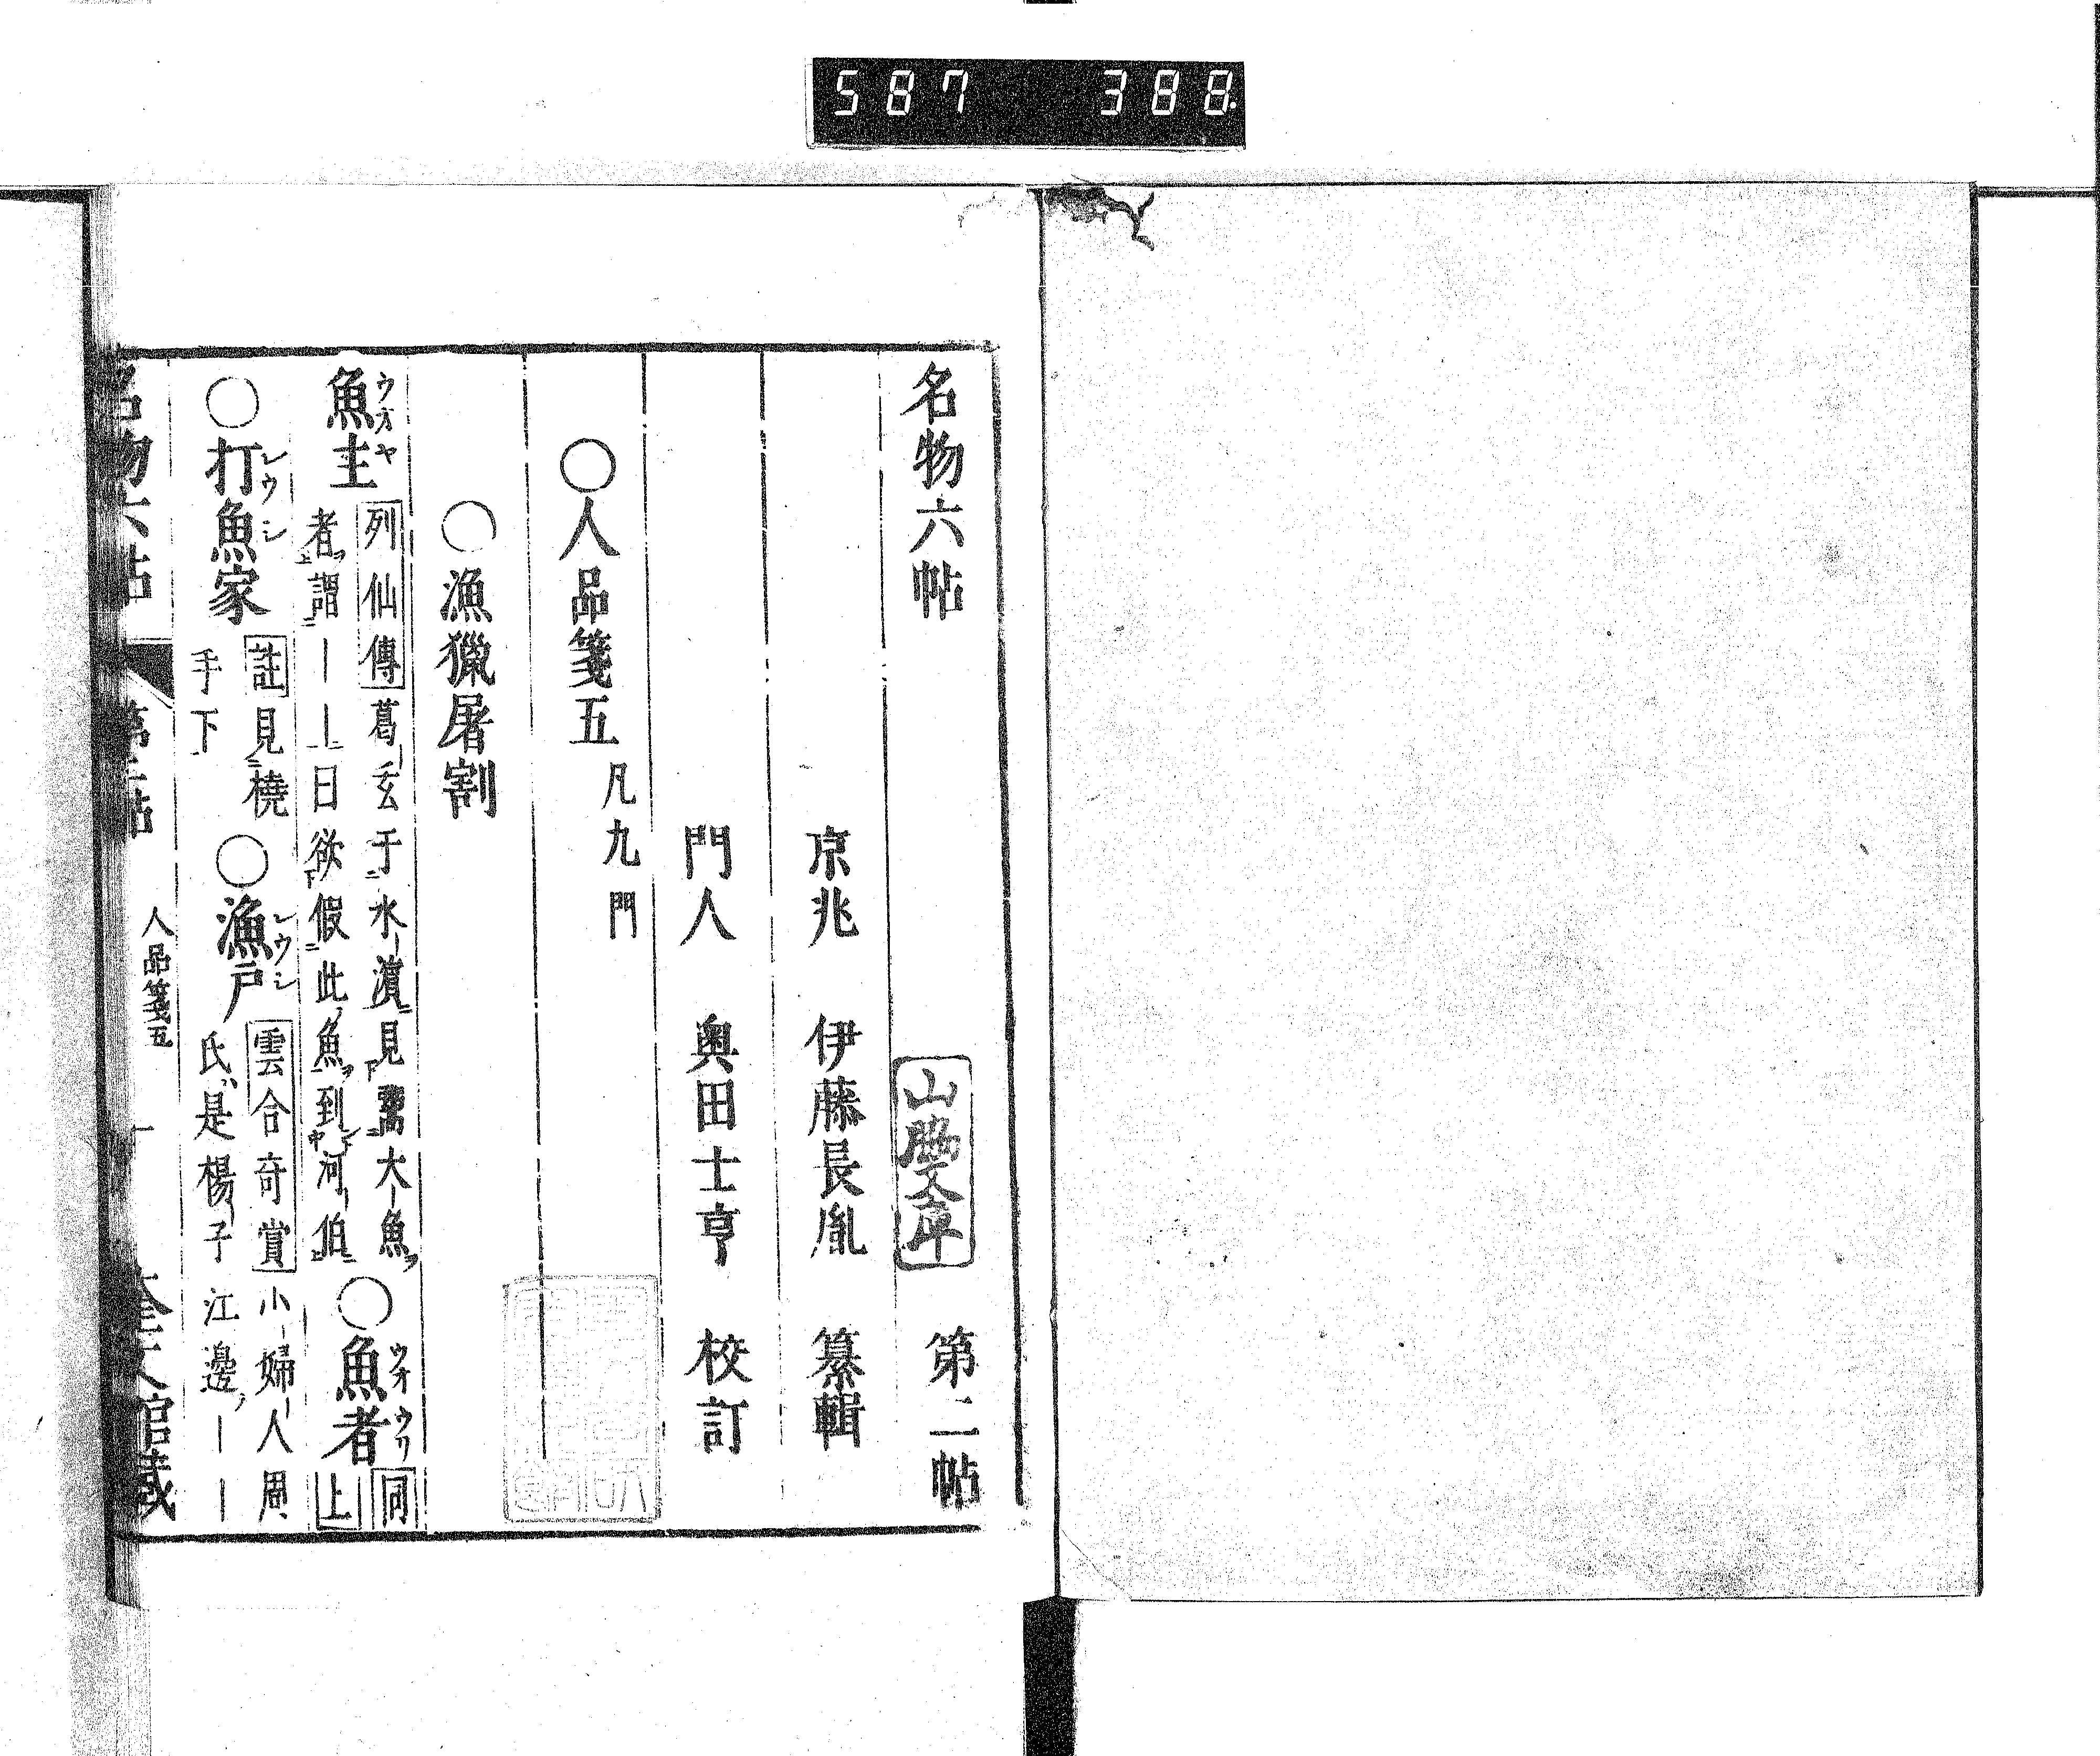 587 388.
名物六帖 第二帖
山脇文庫
京兆 伊藤長胤 纂輯
門人 奥田士亨 校訂
〇人品箋五 凡九門
〇漁獵屠割
魚主 ウオヤ 列仙傳 葛玄于水濵見鬻大魚
者謂――曰欲假此魚到河伯
〇魚者 ウオウリ 同上
〇打魚家 レウシ 註見橈
手下
〇漁戸 レウシ 雲合奇賞 小婦人周
氏是楊子江邊――
名物六帖 人品箋五 奎文館藏